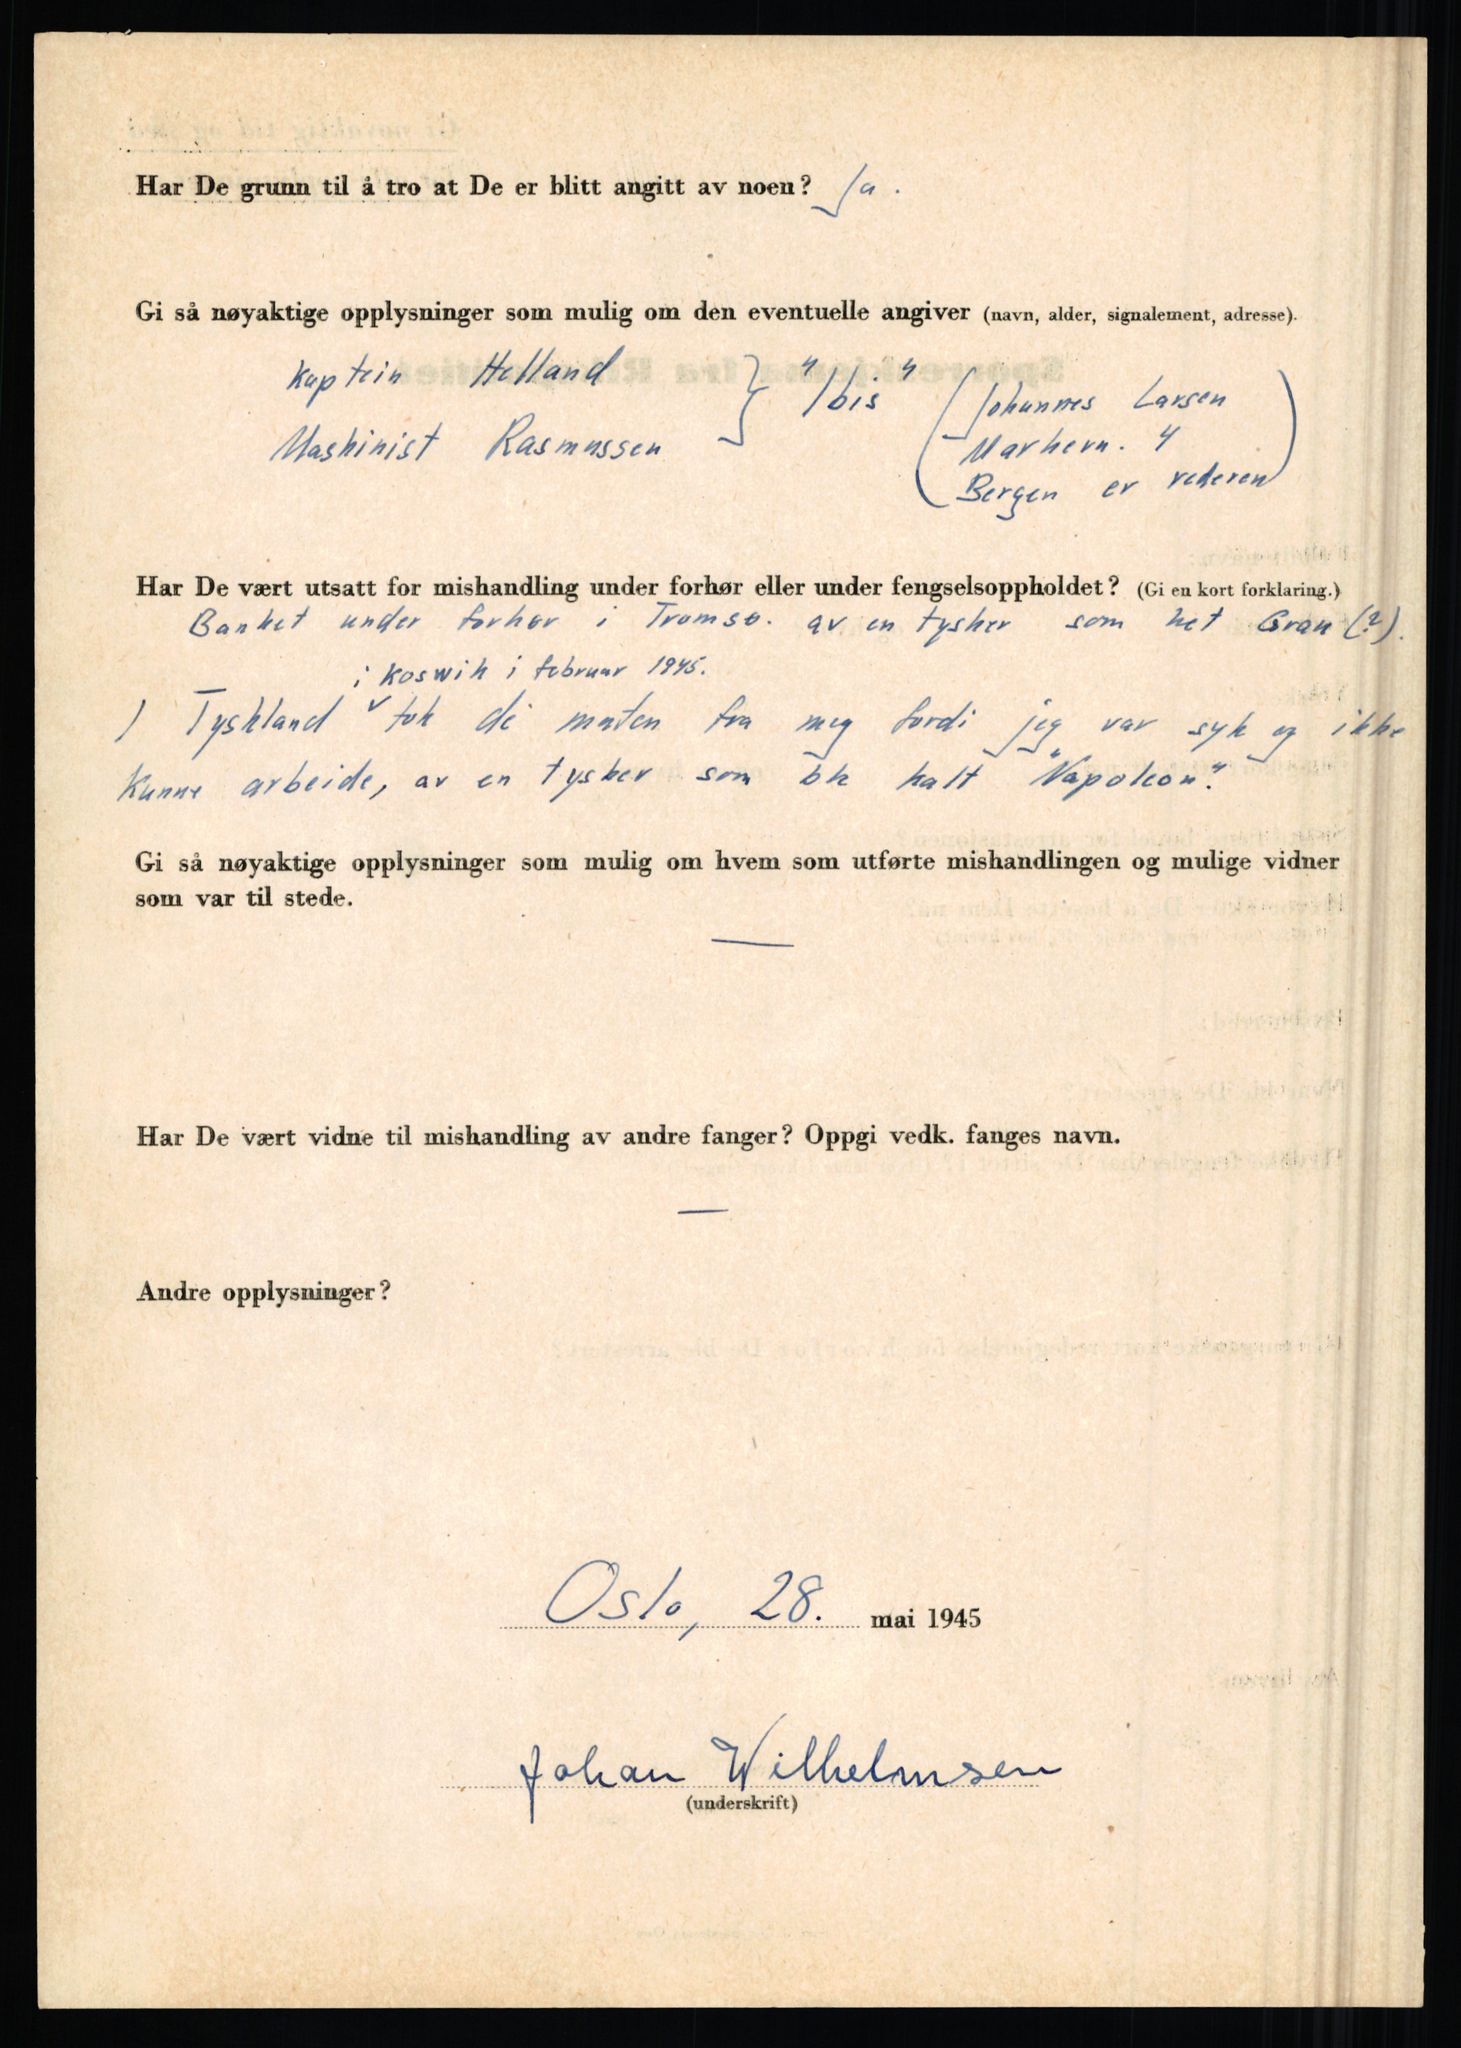 Har De grunn til å tro at De er blitt angitt av noen? Ja.
Gi så nøyaktige opplysninger som mulig om den eventuelle angiver (navn, alder, signalement, adresse).
Kaptein Helland
Maskinist Rasmussen
} "Ibis"
(Johannes Larsen
Markevn. 4
Bergen er rederen)
Har De vært utsatt for mishandling under forhør eller under fengselsoppholdet? (Gi en kort forklaring.)
Banket under forhør i Tromsø. av en tysker som het Grau (?).
i Koswik i februar 1945.
I Tyskland tok de maten fra meg fordi jeg var syk og ikke
kunne arbeide, av en tysker som ble kalt "Napoleon".
Gi så nøyaktige opplysninger som mulig om hvem som utførte mishandlingen og mulige vidner
som var til stede.
—
Har De vært vidne til mishandling av andre fanger? Oppgi vedk. fanges navn.
—
Andre opplysninger?
Oslo, 28. mai 1945
Johan Wilhelmsen
(underskrift)